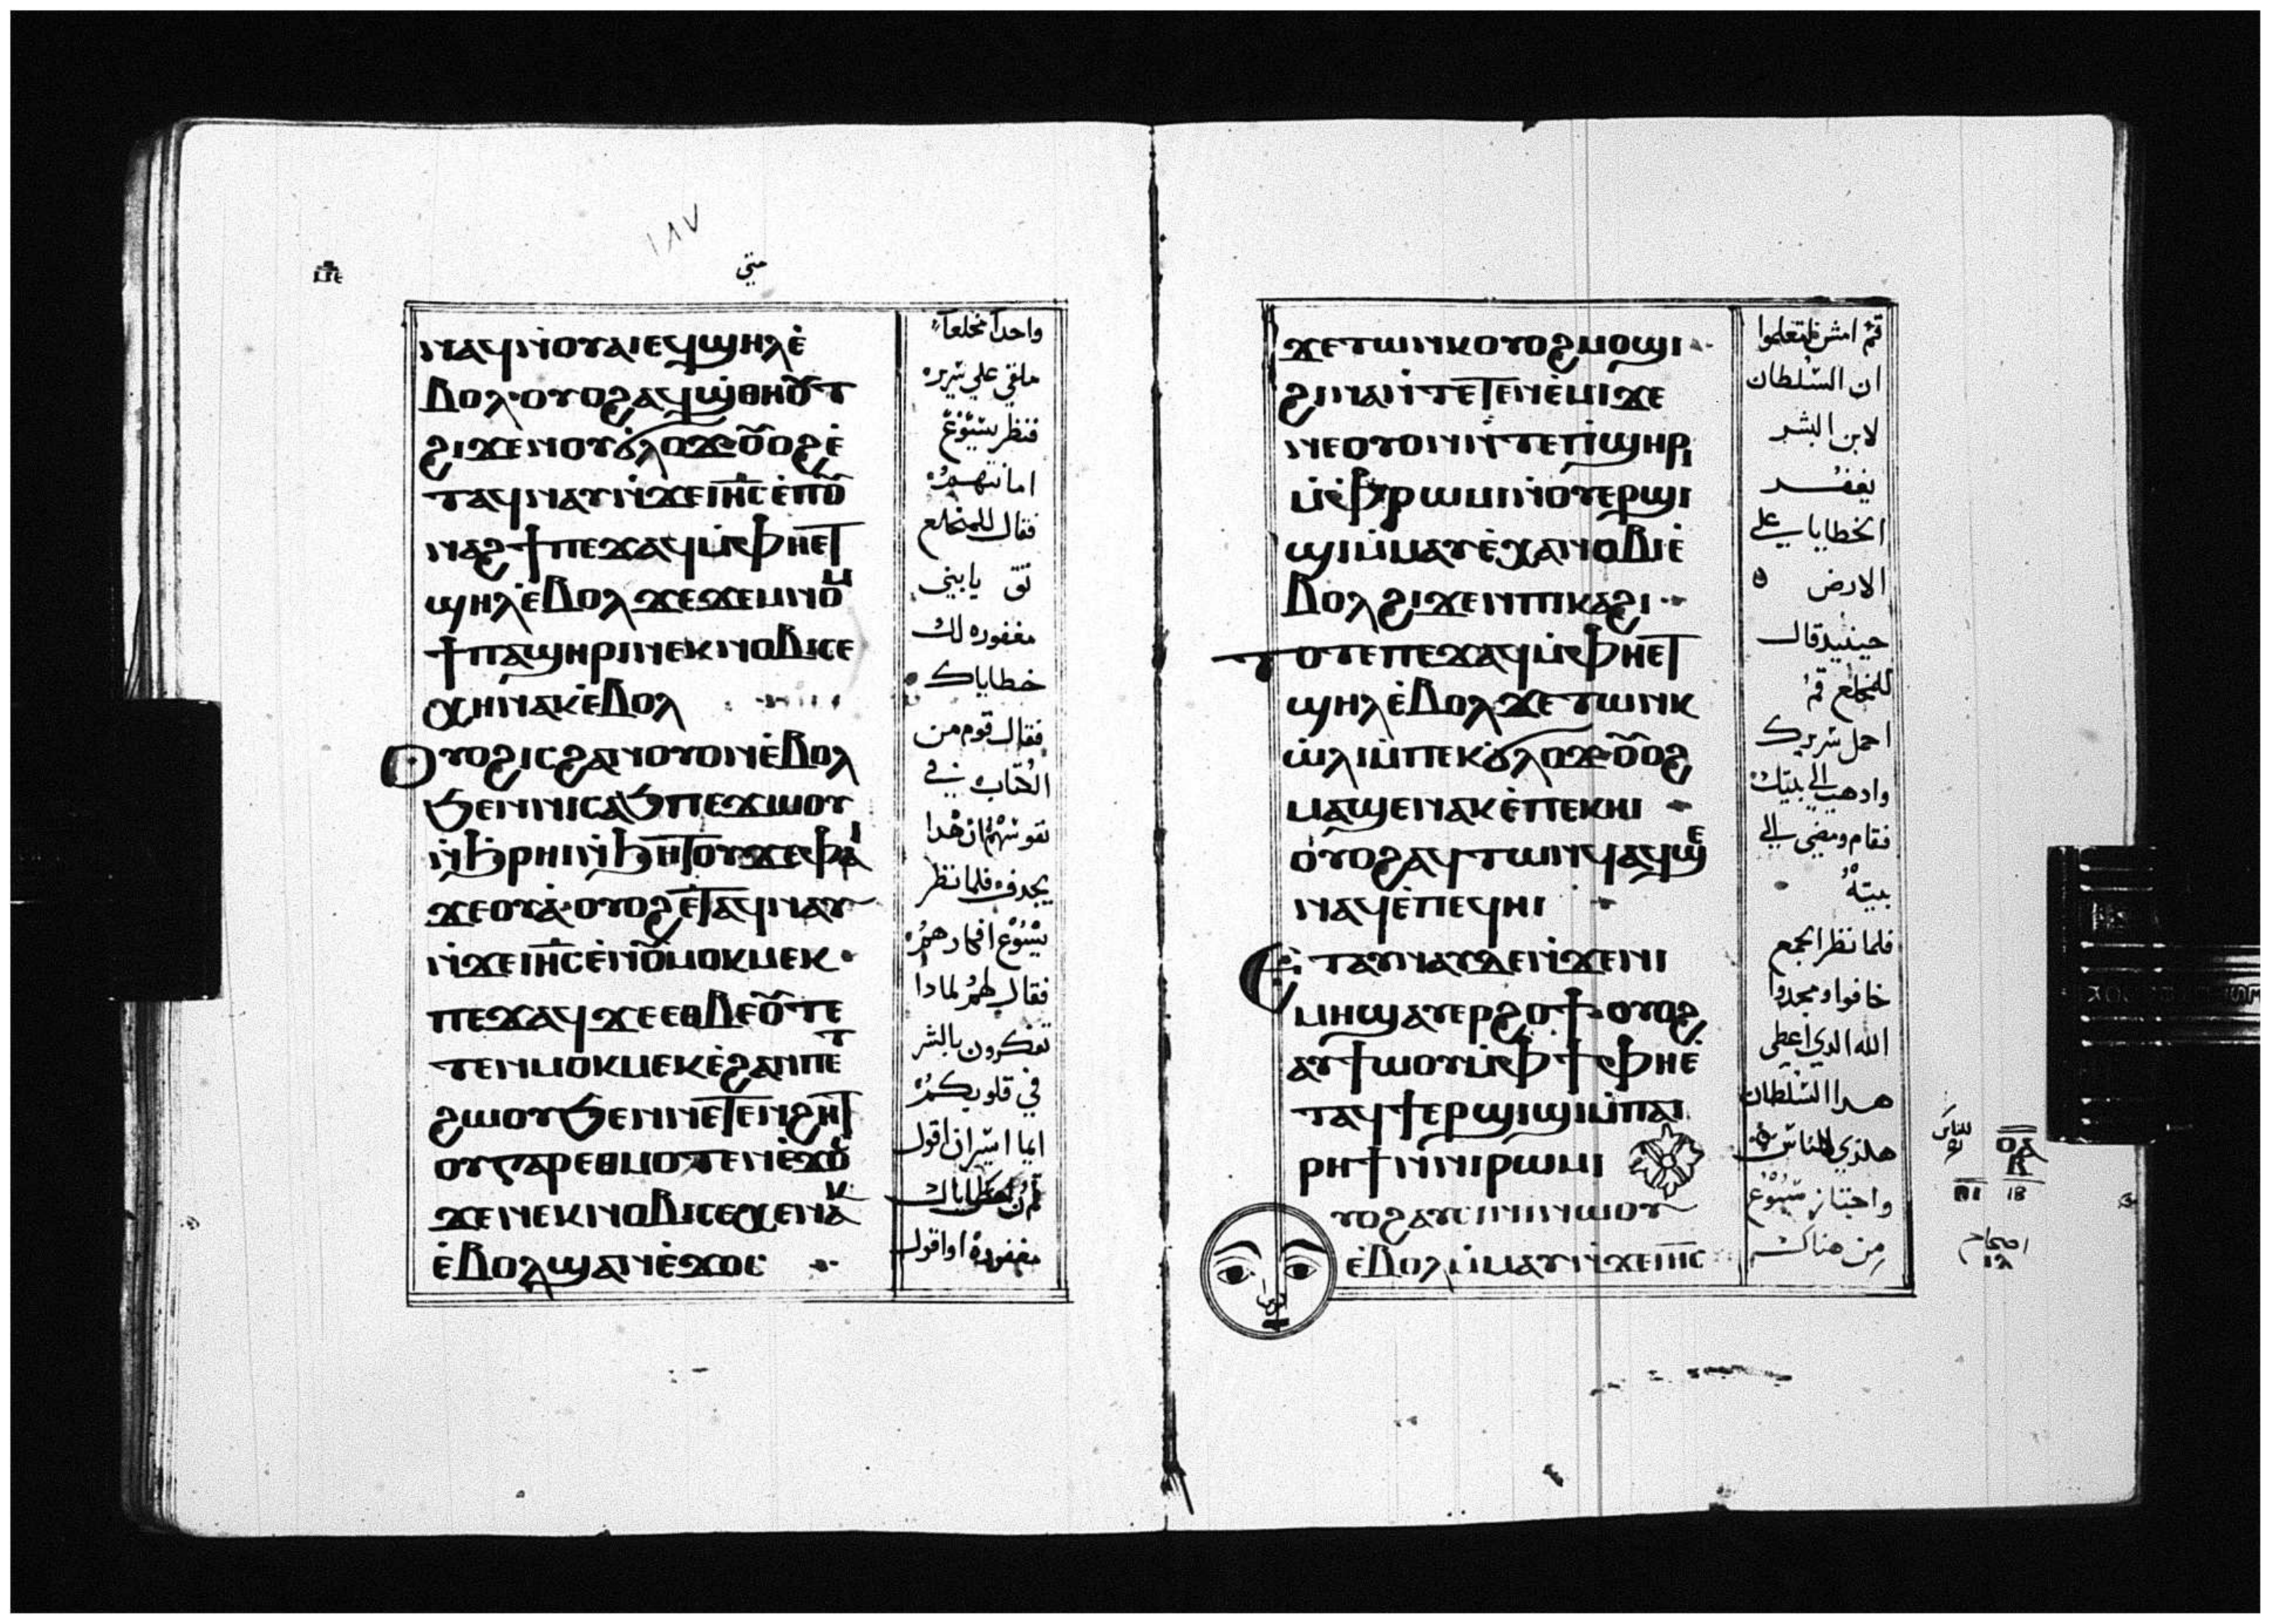 ١٨٧
متي
ⲛⲁϥⲛ̀ⲟⲩⲁⲓⲉϥϣⲏⲗⲉ̀
ⲃⲟⲗ·ⲟⲩⲟϩⲁϥϣ̀ⲑⲏⲟⲩⲧ
ϩⲓϫⲉⲛⲟⲩϭ̀ⲗⲟϫ·ⲟⲩⲟϩⲉ̀
ⲧⲁϥⲛⲁⲩⲛ̀ϫⲉⲓⲏ̅ⲥ̅ⲉ̀ⲡⲟⲩ
ⲛⲁϩϯⲡⲉϫⲁϥⲙ̀ⲫⲏⲉⲧ
ϣⲏⲗⲉ̀ⲃⲟⲗϫⲉϫⲉⲙⲛⲟⲙ
ϯⲡⲁϣⲏⲣⲓⲛⲉⲕⲛⲟⲃⲓⲥⲉ
ⲭⲏⲛⲁⲕⲉ̀ⲃⲟⲗ
ⲟⲩⲟϩⲓⲥϩⲁⲛⲟⲩⲟⲛⲉ̀ⲃⲟⲗ
ϧⲉⲛⲛⲓⲥⲁϧⲡⲉϫⲱⲟⲩ
ⲛ̀ϧⲣⲏⲓⲛ̀ϧⲏⲧⲟⲩϫⲉⲫⲁⲓ
ϫⲉⲟⲩⲁ̀·ⲟⲩⲟϩⲉ̀ⲧⲁϥⲛⲁⲩ
ⲛ̀ϫⲉⲓⲏ̅ⲥ̅ⲉ̀ⲛⲟⲩⲙⲟⲕⲙⲉⲕ·
ⲡⲉϫⲁϥϫⲉⲉⲑⲃⲉⲟⲩⲧⲉ
ⲧⲉⲛⲙⲟⲕⲙⲉⲕⲉ̀ϩⲁⲛⲡⲉⲧ
ϩⲱⲟⲩϧⲉⲛⲛⲉⲧⲉⲛϩⲏⲧ
ⲟⲩⲅⲁⲣⲉⲑⲙⲟⲧⲉⲛⲉ̀ϫⲟⲥ
ϫⲉⲛⲉⲕⲛⲟⲃⲓⲥⲉⲭⲉⲛⲁⲕ
ⲉ̀ⲃⲟⲗϣⲁⲛⲉ̀ϫⲟⲥ
واحدا مخلعا
ملقي علي سريره
فنظر يسوع
امانتهم
فقال للمخلع
ثق يا بني
مغفوره لك
خطاياك
فقال قوم من
الكتاب في
نفوسهم ان هدا
يجدف فلما نظر
يسوع افكارهم
فقال لهم لمادا
تفكرون بالشر
في قلوبكم
ايما ايسر ان اقول
مغفورة او اقول
ϫⲉⲧⲱⲛⲕⲟⲩⲟϩⲙⲟϣⲓ
ϩⲓⲛⲁⲛ̀ⲧⲉⲧⲉⲛⲉ̀ⲙⲓϫⲉ
ⲛⲉⲟⲩⲟⲛⲛ̀ⲧⲉⲡⲓϣⲏⲣⲓ
ⲙ̀ⲫⲣⲱⲙⲓⲛ̀ⲟⲩⲉⲣϣⲓ
ϣⲓⲙ̀ⲙⲁⲩⲉ̀ⲭⲁⲛⲟⲃⲓⲉ̀
ⲃⲟⲗϩⲓϫⲉⲛⲡⲓⲕⲁϩⲓ
ⲧⲟⲧⲉⲡⲉϫⲁϥⲙ̀ⲫⲏⲉⲧ
ϣⲏⲗⲉ̀ⲃⲟⲗϫⲉⲧⲱⲛⲕ
ⲱ̀ⲗⲓⲙ̀ⲡⲉⲕϭ̀ⲗⲟϫ·ⲟⲩⲟϩ
ⲙⲁϣⲉⲛⲁⲕⲉ̀ⲡⲉⲕⲏⲓ
ⲟⲩⲟϩⲁϥⲧⲱⲛϥⲁϥϣⲉ
ⲛⲁϥⲉ̀ⲡⲉϥⲏⲓ
ⲉⲧⲁⲩⲛⲁⲩⲇⲉⲛ̀ϫⲉⲛⲓ
ⲙⲏϣⲁⲩⲉⲣϩⲟϯ·ⲟⲩⲟϩ
ⲁⲩϯⲱⲟⲩⲙ̀ⲫϯⲫⲏⲉ̀
ⲧⲁϥϯⲉⲣϣⲓϣⲓⲙ̀ⲡⲁⲓ
ⲣⲏϯⲛ̀ⲛⲓⲣⲱⲙⲓ
ⲉ̀ⲃⲟⲗⲙ̀ⲙⲁⲩⲛ̀ϫⲉⲓⲏ̅ⲥ̅
قم امش فلتعلموا
ان السلطان
لابن البشر
يغفر
الخطايا علي
الارض
حينيد قال
للمخلع قم
احمل سريرك
وادهب الي بيتك
فقام ومضي الي
بيته
فلما نظر الجمع
خافوا ومجدوا
الله الدي اعطي
هدا السلطان
هكذي للناس
واجتاز يسوع
من هناك